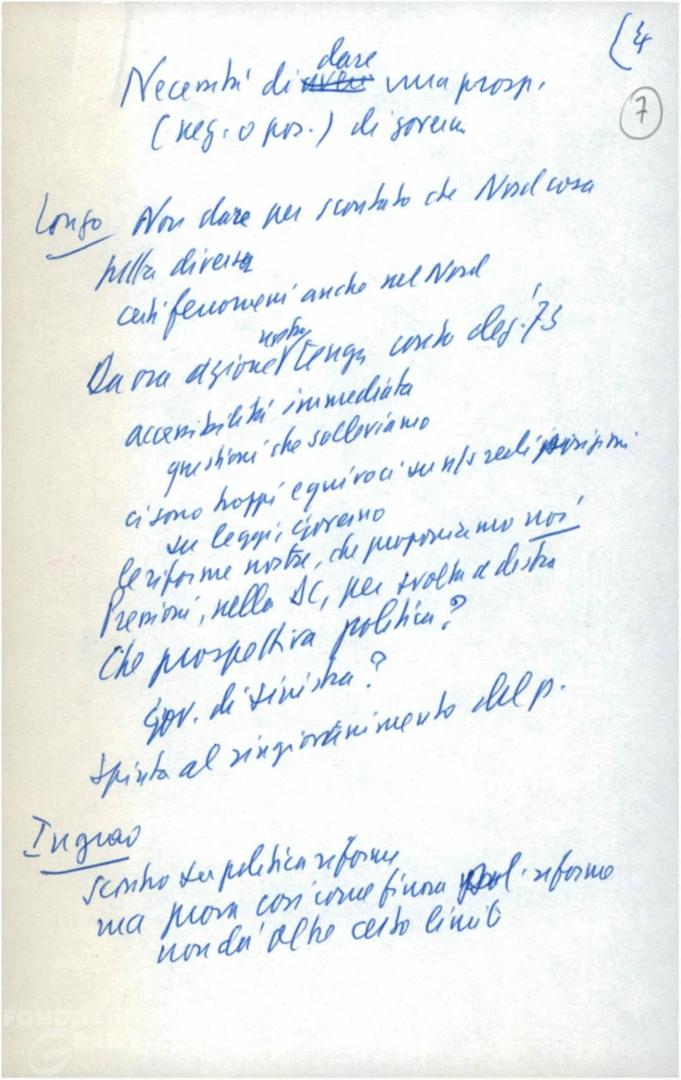 (4
7
Necessità di dare una prosp.
(neg. o pos.) di governo
Longo Non dare per scontato che Nord cosa
tutta diversa
certi fenomeni anche nel Nord
Da ora azione nostra tenga conto deg. '73
accessibilità immediata
questioni che solleviamo
ci sono troppi equivoci su n/s reali posizioni
su leggi, governo
le riforme nostre, che proponiamo noi
Pressioni, nella DC, per svolta a destra
Che prospettiva politica?
Gov. di sinistra?
Spinta al ringiovanimento del p.
Ingrao
scontro su politica riforme
ma prova così come finora pol. riforme
non dà oltre certo limite
FONDAZI